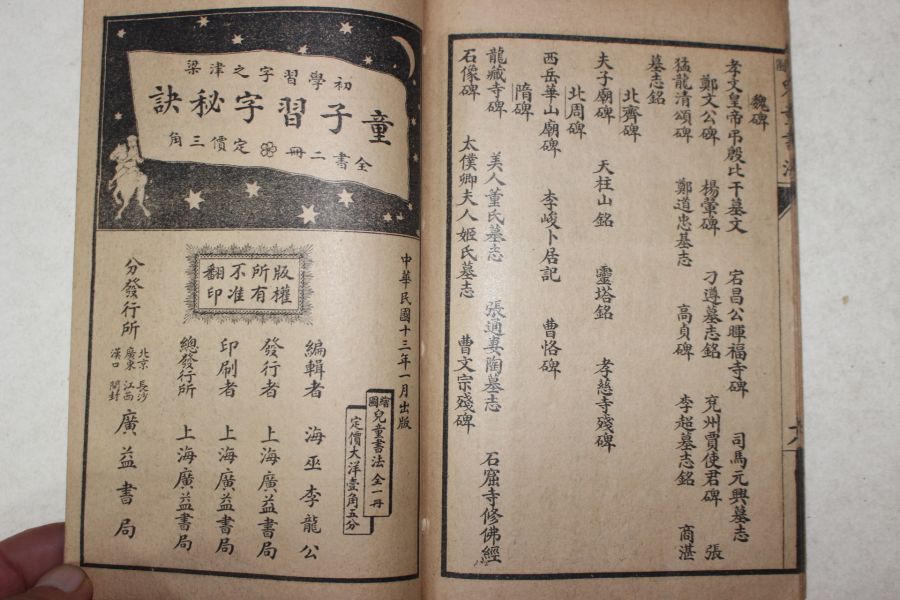 魏碑
孝文皇帝弔殷比干墓文　宕昌公暉福寺碑　司馬元興墓志
鄭文公碑　楊翬碑　刁遵墓志銘　兗州賈使君碑　張
猛龍清頌碑　鄭道忠墓志　高貞碑　李超墓志銘　商湛
墓志銘
北齊碑
夫子廟碑　天柱山銘　靈塔銘　孝慈寺殘碑
北周碑
西岳華山廟碑　李峻卜居記　曹恪碑
隋碑
龍藏寺碑　美人董氏墓志　張通妻陶墓志　石窟寺修佛經
石像碑　太僕卿夫人姬氏墓志　曹文宗殘碑
初學習字之津梁
童子習字秘訣
全書二冊　定價三角
中華民國十三年一月出版
版權所有
不准翻印
繪圖兒童書法全一冊
定價大洋壹角五分
編輯者　海巫李龍公
發行者　上海廣益書局
印刷者　上海廣益書局
總發行所　上海廣益書局
分發行所　北京　長沙　廣東　江西　漢口　開封　廣益書局